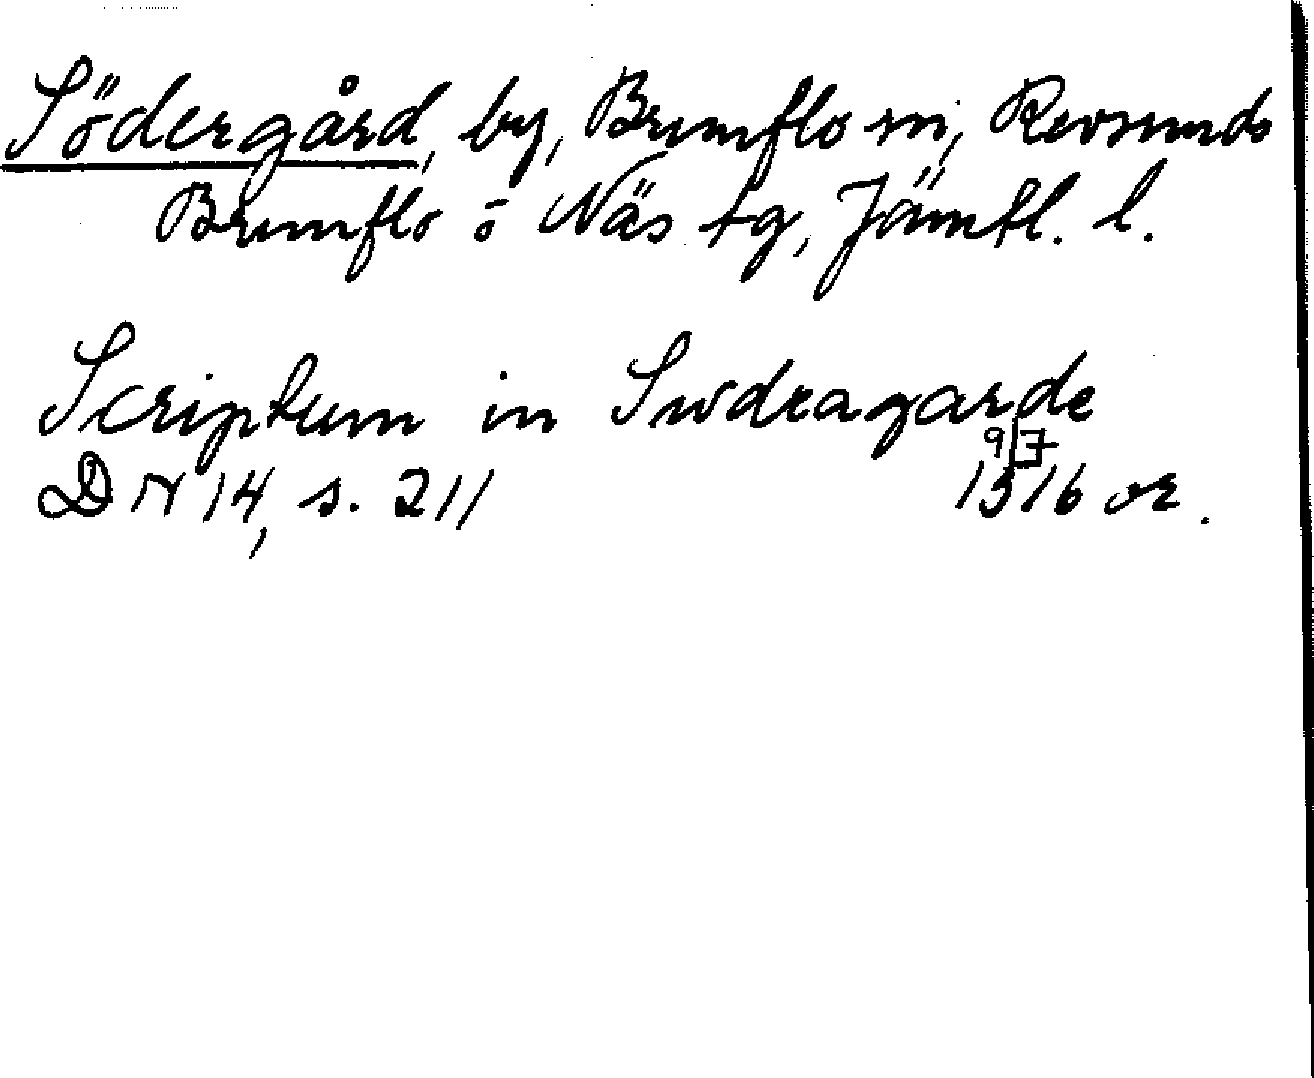 Södergård, by, Brunflo sn, Revsunds
Brunflo o Näs tg, Jämtl. l.
Scriptum in Swdragarde
9/7
DN 14, s. 211 1516 or.